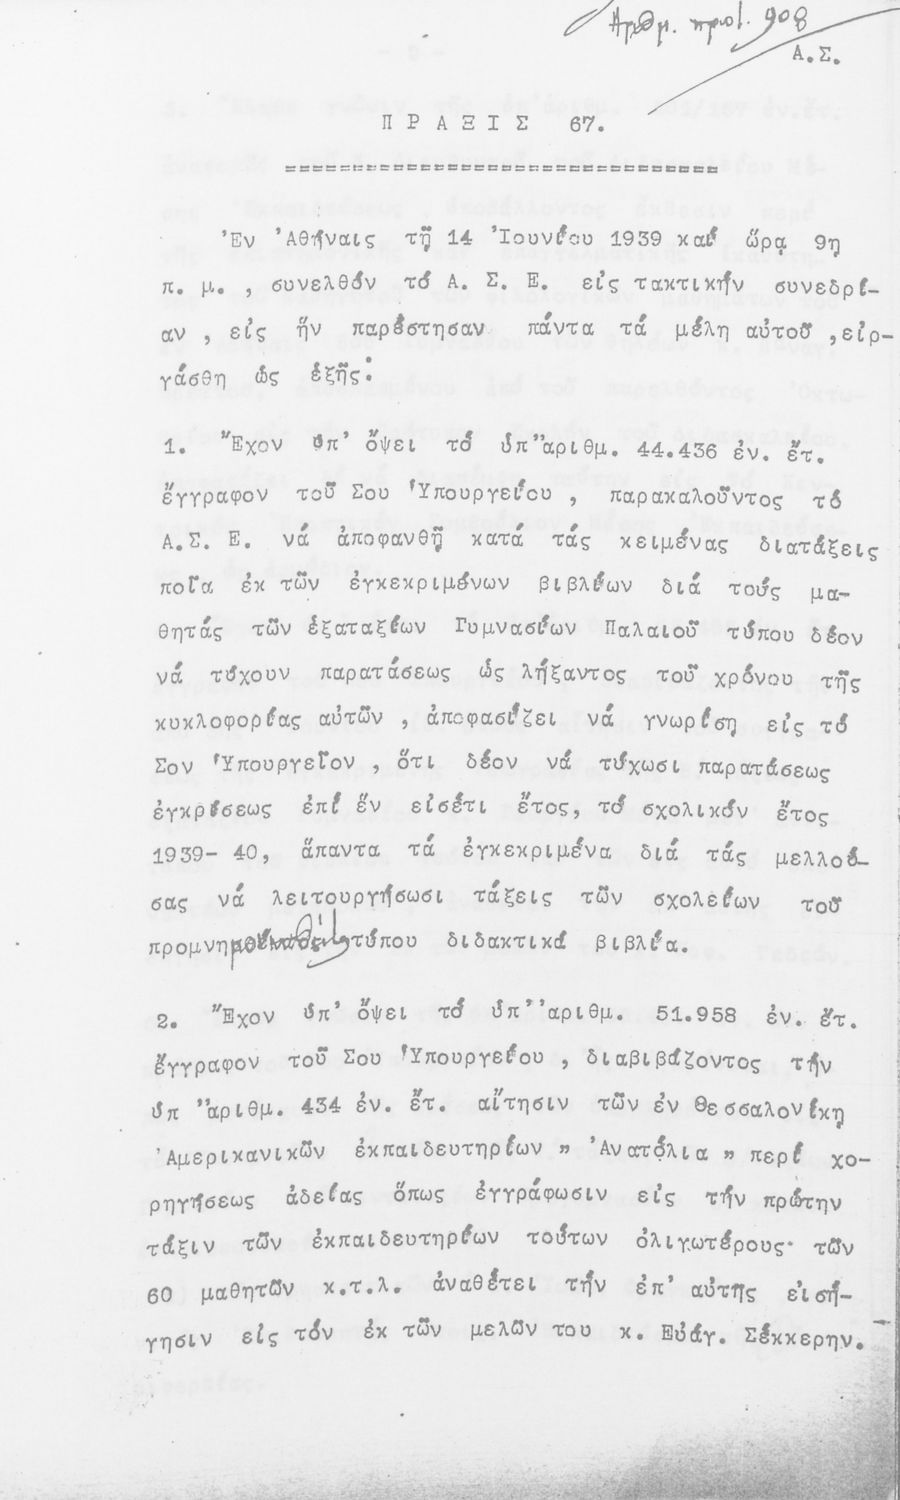 Αριθμ. πρωτ. 908
Α.Σ.
Π Ρ Α Ξ Ι Σ 67.
Ἐν Ἀθήναις τῇ 14 Ἰουνίου 1939 καί ὥρᾳ 9ῃ
π. μ. , συνελθόν τό Α. Σ. Ε. εἰς τακτικήν συνεδρί-
αν , εἰς ἥν παρέστησαν πάντα τά μέλη αὐτοῦ ,εἰρ-
γάσθη ὡς ἑξῆς:
1. Ἔχον ὑπ' ὄψει τό ὑπ' ἀριθμ. 44.436 ἐν. ἔτ.
ἔγγραφον τοῦ Σου Ὑπουργείου , παρακαλοῦντος τό
Α.Σ. Ε. νά ἀποφανθῇ κατά τάς κειμένας διατάξεις
ποῖα ἐκ τῶν ἐγκεκριμένων βιβλίων διά τούς μα-
θητάς τῶν ἑξαταξίων Γυμνασίων Παλαιοῦ τύπου δέον
νά τύχουν παρατάσεως ὡς λήξαντος τοῦ χρόνου τῆς
κυκλοφορίας αὐτῶν , ἀποφασίζει νά γνωρίσῃ εἰς τό
Σον Ὑπουργεῖον , ὅτι δέον νά τύχωσι παρατάσεως
ἐγκρίσεως ἐπί ἕν εἰσέτι ἔτος, τό σχολικόν ἔτος
1939- 40, ἅπαντα τά ἐγκεκριμένα διά τάς μελλού-
σας νά λειτουργήσωσι τάξεις τῶν σχολείων τοῦ
τύπου διδακτικά βιβλία.
2. Ἔχον ὑπ' ὄψει τό ὑπ' ἀριθμ. 51.958 ἐν. ἔτ.
ἔγγραφον τοῦ Σου Ὑπουργείου , διαβιβάζοντος τήν
ὑπ' ἀριθμ. 434 ἐν. ἔτ. αἴτησιν τῶν ἐν Θεσσαλονίκῃ
Ἀμερικανικῶν ἐκπαιδευτηρίων " Ἀνατόλια " περί χο-
ρηγήσεως ἀδείας ὅπως ἐγγράφωσιν εἰς τήν πρώτην
τάξιν τῶν ἐκπαιδευτηρίων τούτων ὀλιγωτέρους τῶν
60 μαθητῶν κ.τ.λ. ἀναθέτει τήν ἐπ' αὐτῆς εἰσή-
γησιν εἰς τόν ἐκ τῶν μελῶν του κ. Εὐάγ. Σέκκερην.